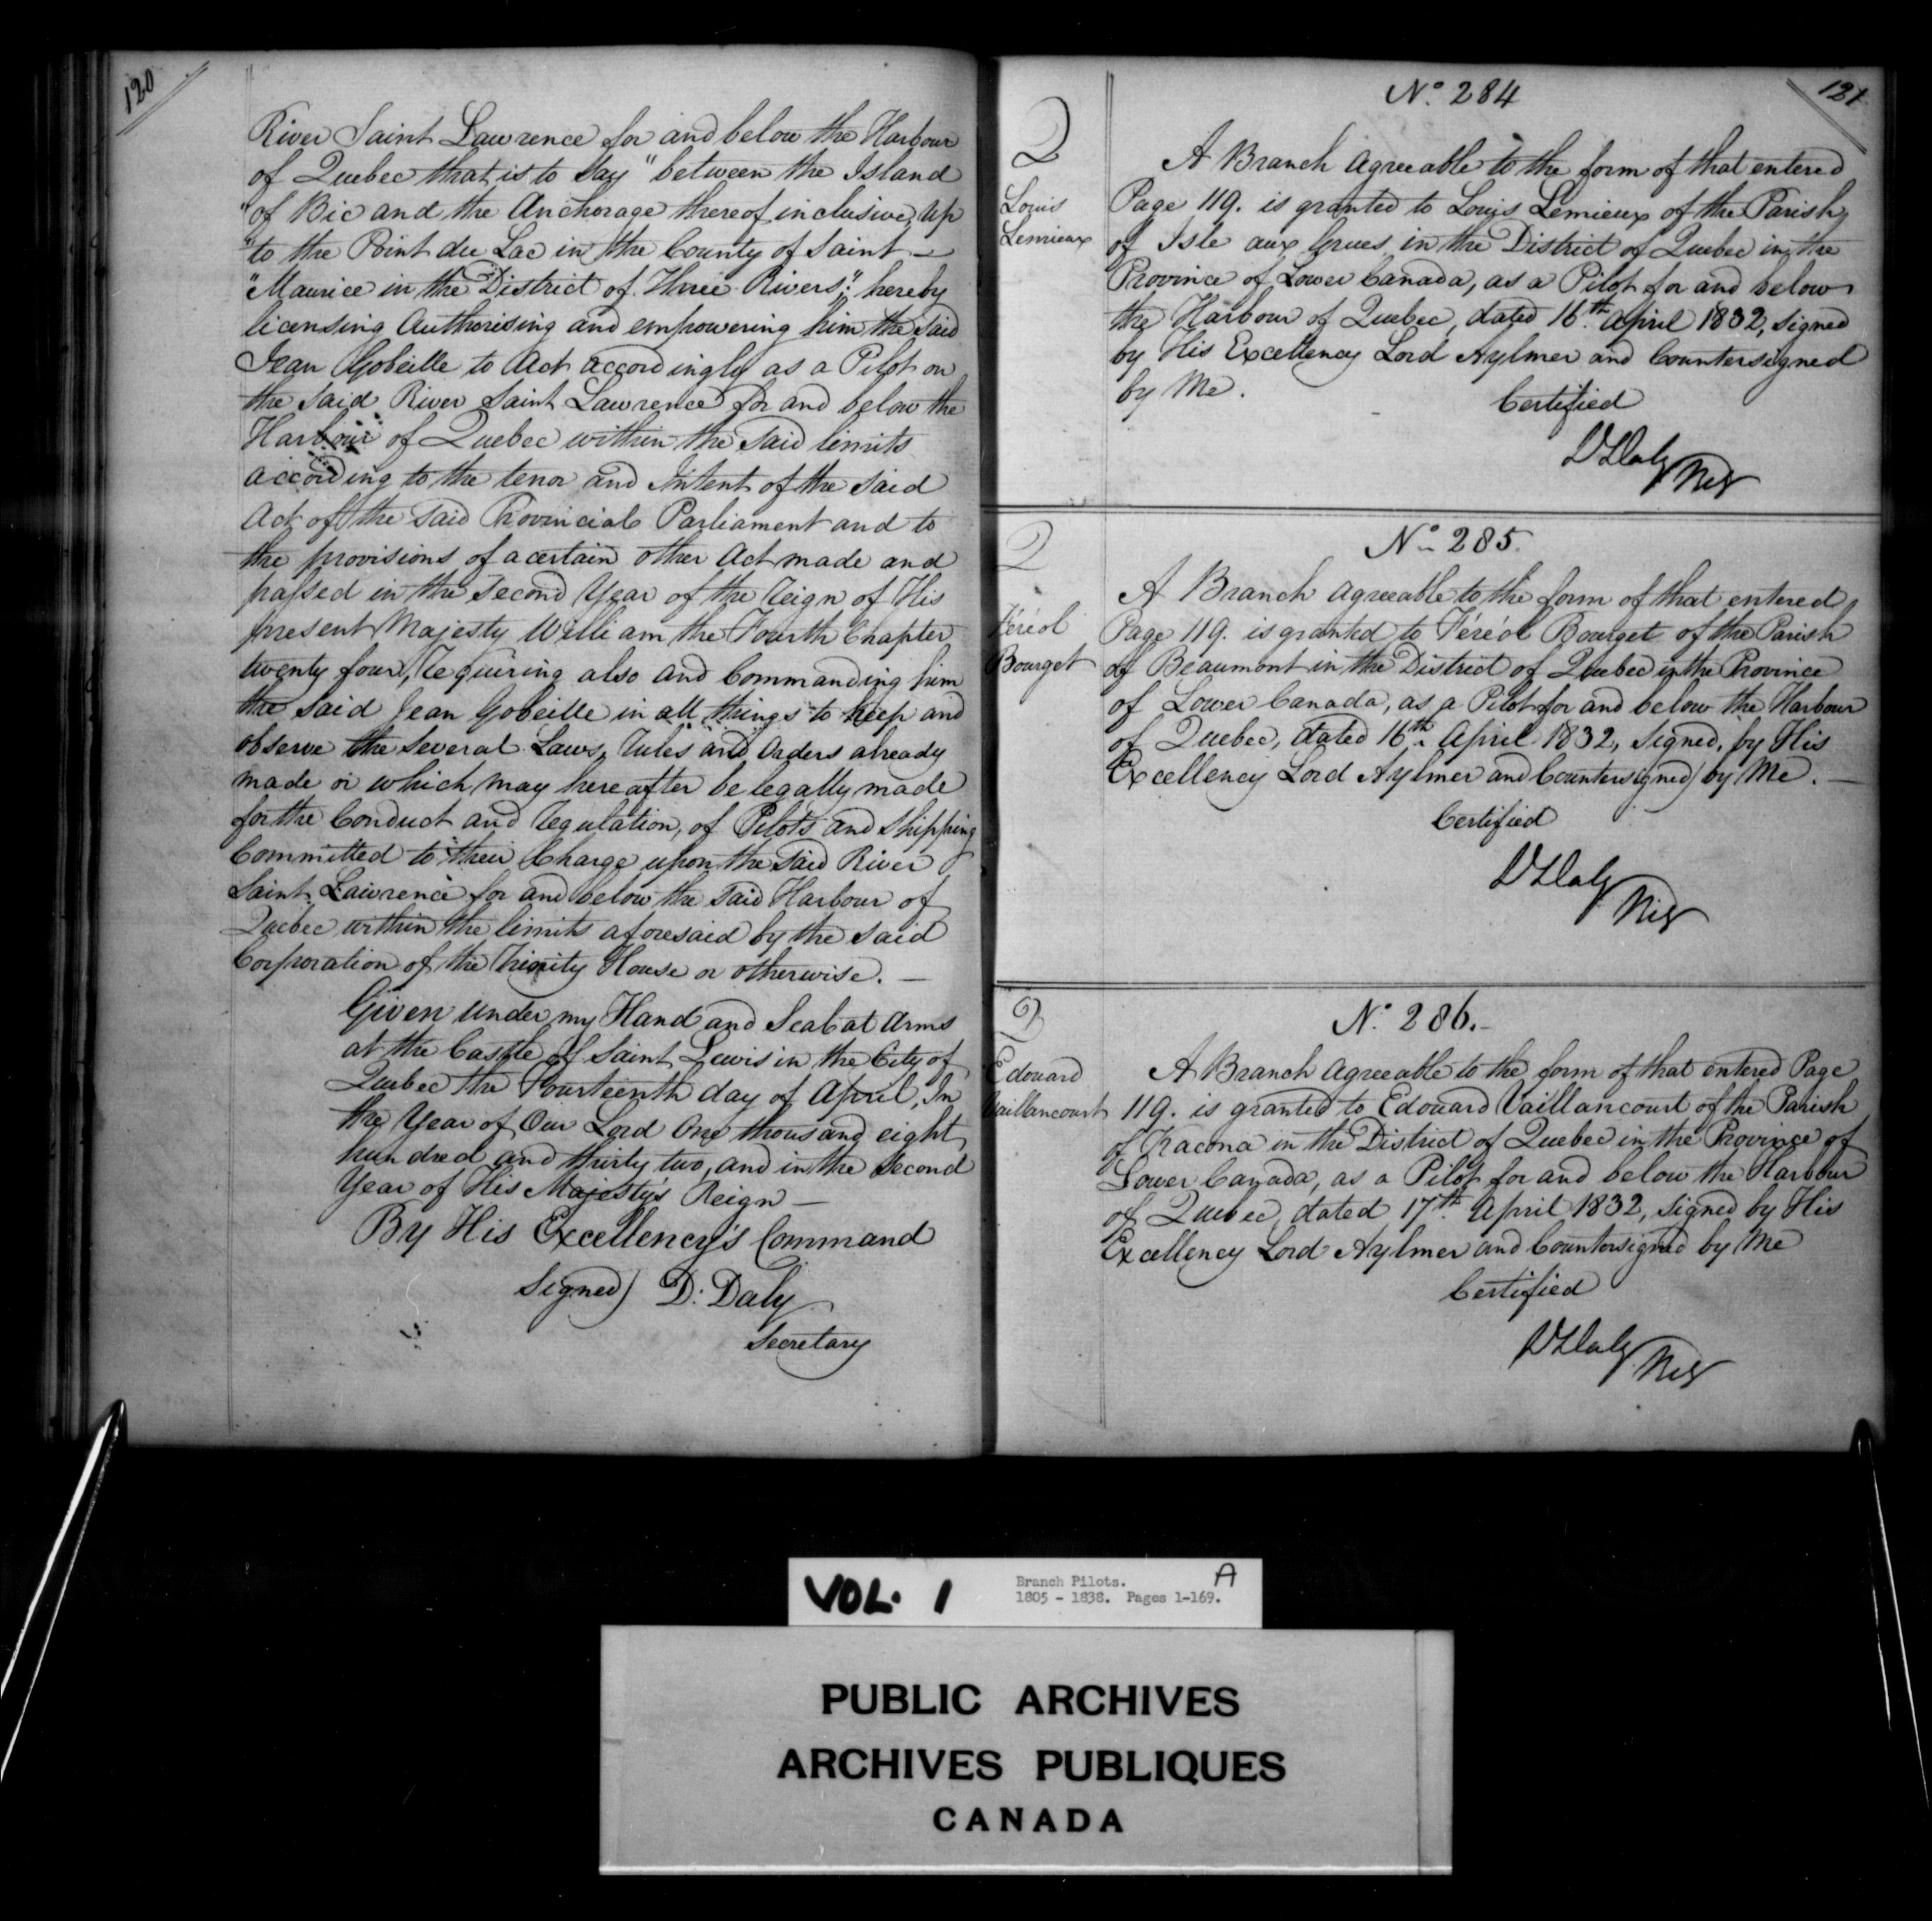 120
River Saint Lawrence for and below the Harbour
of Quebec that is to Say "between the Island
"of Bic and the Anchorage thereof inclusive, up
"to the Point du Lac in the County of Saint —
"Maurice in the District of Three Rivers": hereby
licensing Authorising and empowering him the said
Jean Gobeille to Act accordingly as a Pilot on
the said River Saint Lawrence for and below the
Harbour of Quebec within the said limits
according to the tenor and Intent of the said
Act of the said Provincial Parliament and to
the provisions of a certain other Act made and
passed in the Second Year of the Reign of His
present Majesty William the Fourth Chapter
twenty four, Requiring also and Commanding him
the said Jean Gobeille in all things to keep and
observe the several Laws, Rules and Orders already
made or which may hereafter be legally made
for the Conduct and Regulation, of Pilots and Shipping
Committed to their Charge upon the said River
Saint Lawrence for and below the said Harbour of
Quebec within the limits aforesaid by the said
Corporation of the Trinity House or otherwise. —
Given under my Hand and Seal at Arms
at the Castle of Saint Lewis in the City of
Quebec the Fourteenth day of April, In
the Year of Our Lord One thousand eight
hundred and thirty two, and in the Second
Year of His Majesty's Reign —
By His Excellency's Command
Signed) D: Daly
Secretary
121
No. 284
Louis
Lemieux
A Branch Agreeable to the form of that entered
Page 119. is granted to Louis Lemieux of the Parish
of Isle aux Grues in the District of Quebec in the
Province of Lower Canada, as a Pilot for and below
the Harbour of Quebec, dated 16th. April 1832, signed
by His Excellency Lord Aylmer and Countersigned
by Me.
Certified
D Daly
No. 285.
Féréol
Bourget
A Branch Agreeable to the form of that entered
Page 119. is granted to Féréol Bourget of the Parish
of Beaumont in the District of Quebec in the Province
of Lower Canada, as a Pilot for and below the Harbour
of Quebec, dated 16th. April 1832, signed, by His
Excellency Lord Aylmer and Countersigned by Me. —
Certified
D Daly
No. 286.-
Edouard
Vaillancourt
A Branch Agreeable to the form of that entered Page
119. is granted to Edouard Vaillancourt of the Parish
of Kacona in the District of Quebec in the Province of
Lower Canada, as a Pilot for and below the Harbour
of Quebec, dated 17th. April 1832, signed by His
Excellency Lord Aylmer and Countersigned by Me
Certified
D Daly
VOL. 1
Branch Pilots. A
1805 - 1838. Pages 1-169.
PUBLIC ARCHIVES
ARCHIVES PUBLIQUES
CANADA